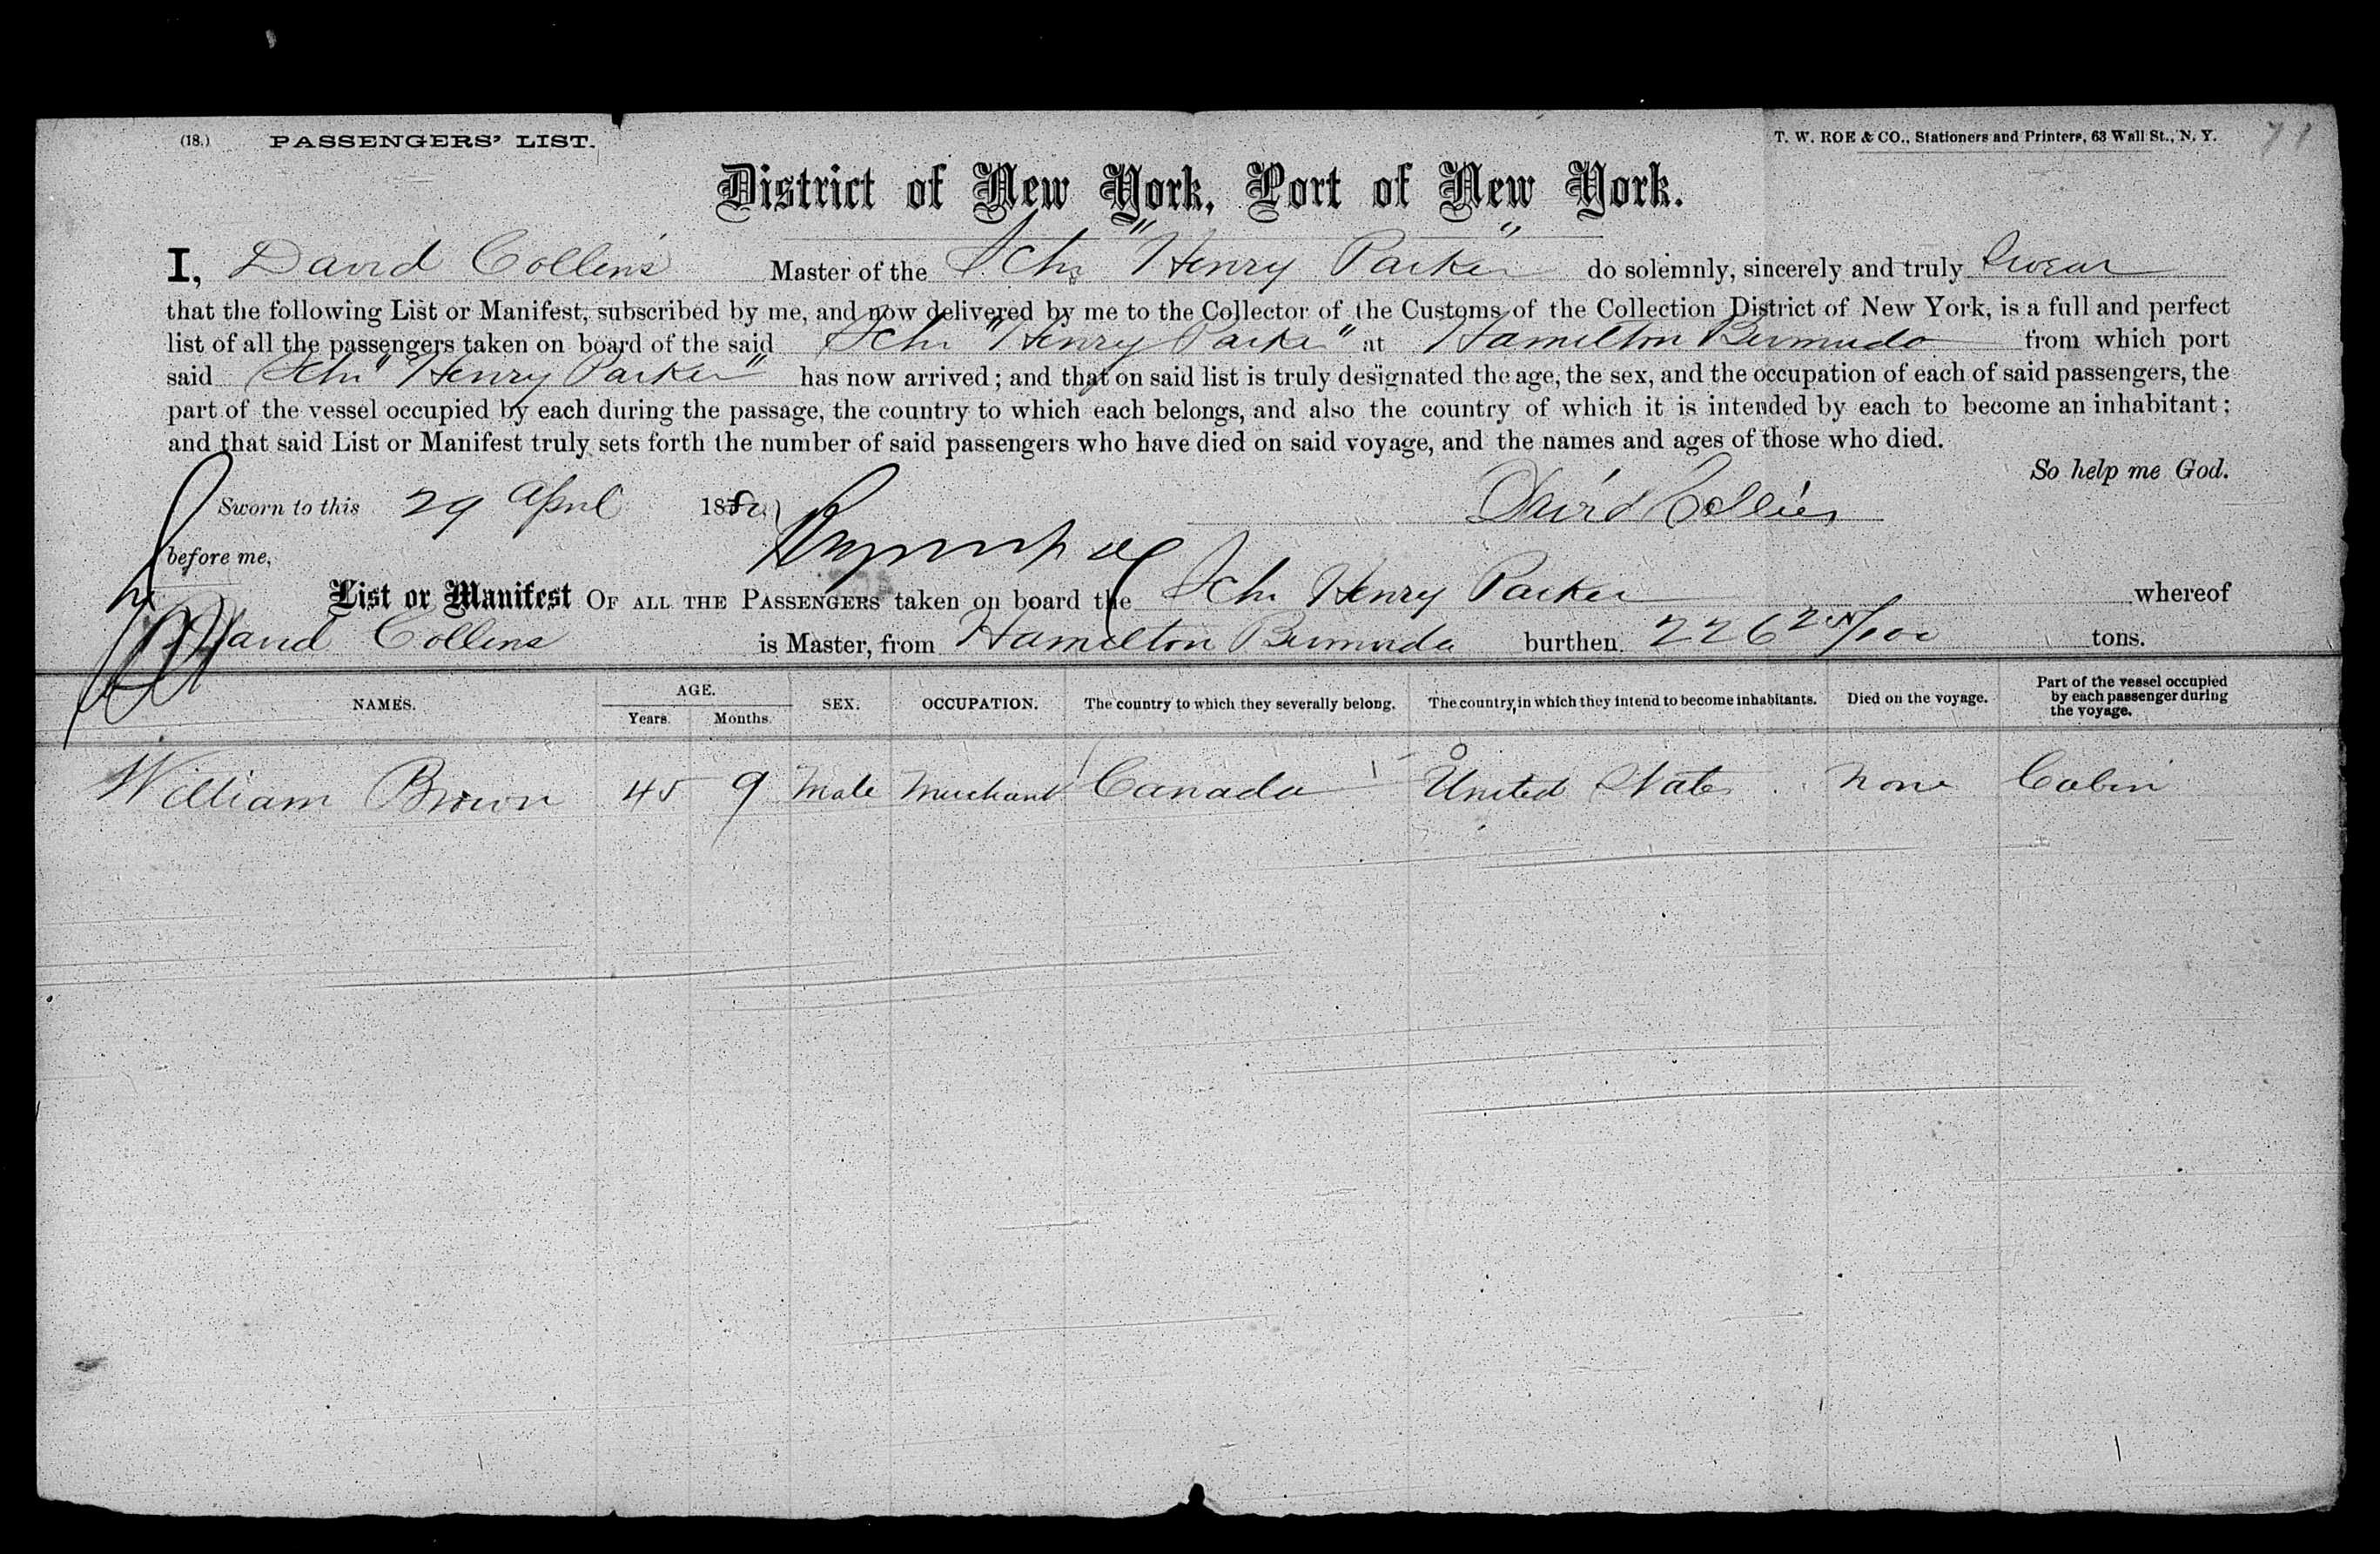 (18.) PASSENGERS' LIST. T. W. ROE & CO., Stationers and Printers, 63 Wall St., N. Y. 71
District of New York, Port of New York.
I, David Collins Master of the Schr "Henry Parker" do solemnly, sincerely and truly Swear
that the following List or Manifest, subscribed by me, and now delivered by me to the Collector of the Customs of the Collection District of New York, is a full and perfect
list of all the passengers taken on board of the said Schr "Henry Parker" at Hamilton Bermuda from which port
said Schr "Henry Parker" has now arrived; and that on said list is truly designated the age, the sex, and the occupation of each of said passengers, the
part of the vessel occupied by each during the passage, the country to which each belongs, and also the country of which it is intended by each to become an inhabitant;
and that said List or Manifest truly sets forth the number of said passengers who have died on said voyage, and the names and ages of those who died.
So help me God.
Sworn to this 29 April 1880 David Collins
before me,
List or Manifest OF ALL THE PASSENGERS taken on board the Schr Henry Parker whereof
David Collins is Master, from Hamilton Bermuda burthen 226 25/100 tons.
NAMES. AGE. Years. Months. SEX. OCCUPATION. The country to which they severally belong. The country in which they intend to become inhabitants. Died on the voyage. Part of the vessel occupied by each passenger during the voyage.
William Brown 45 9 Male Merchant Canada United States None Cabin